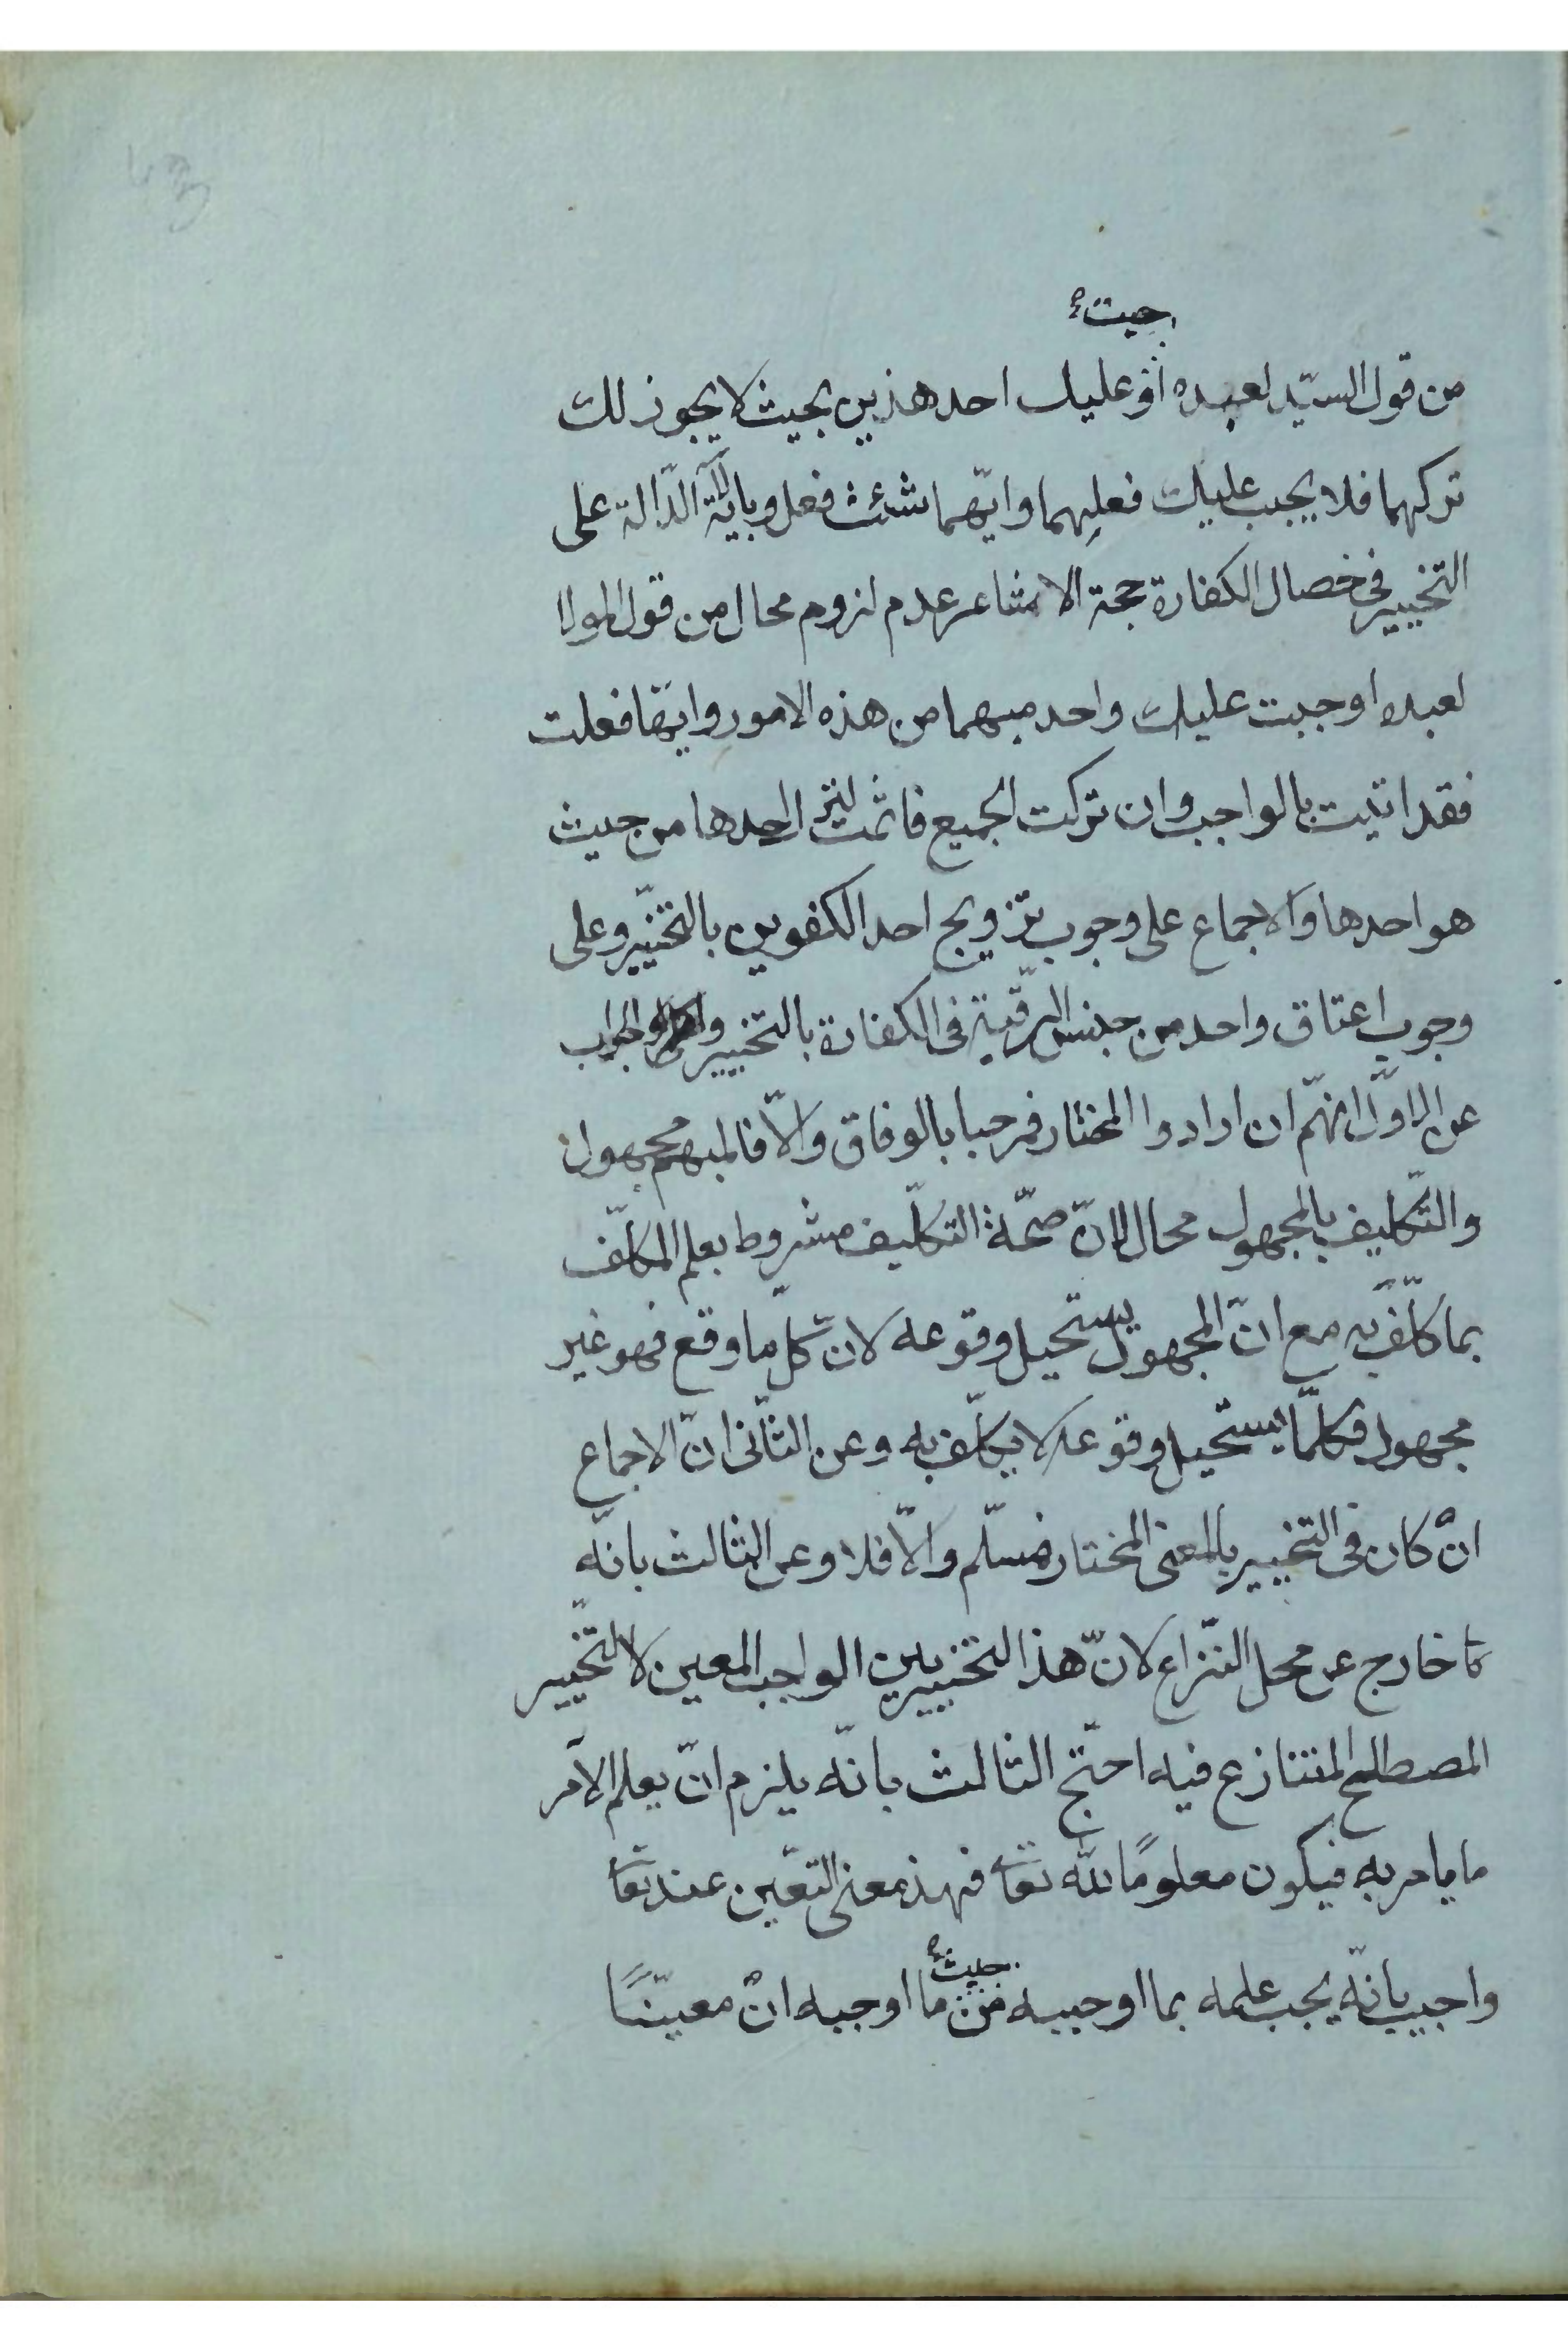 جبت
من قول السيّد لعبده او عليك احد هذين بحيث لا يجوز لك
تركهما فلا يجب عليك فعلهما وايّهما شئت فعل وباية الدّالة على
التخيير فى خصال الكفارة حجة الاشاعر عدم لزوم محال من قول المولا
لعبده اوجبت عليك واحد مبهما من هذه الامور وايّها فعلت
فقد اتيت بالواجب وان تركت الجميع فاثمت لتر احدها من حيث
هو احدها والاجماع على وجوب تزويج احد الكفوين بالتخيّير وعلى
وجوب اعتاق واحد من جنس الرقّية فى الكفارة بالتخيير والجواب
عن الاوّل انهّم ان ارادوا المختار فمرحبا بالوفاق والّا فالمبهم مجهول
والتّكليف بالمجهول محال لانّ صحّة التكلّيف مشروط بعلم المكلّف
بما كلّف به مع انّ المجهول يستحيل وقوعه لانّ كلّ ما وقع فهو غير
مجهول فكلمّا يستحيل وقوعه لا يكلّف به وعن الثّانى انّ الاجماع
انْ كان فى التخيير بالمعنى المختار فمسلّم والّا فلا وعن الثالث بانّه
خارج عن محل النّزاع لانّ هذا التخيير بين الواجب المعين لا التّخيير
المصطلح المتنازع فيه احتّج الثالث بانّه يلزم انّ يعلم الآمر
ما يامر به فيكون معلومًا لله تعا فهذ معنى التعّين عند تعا
حيث
واجيب بانّه يجب علمه بما اوجبه من ما اوجبه انْ معيّنًا